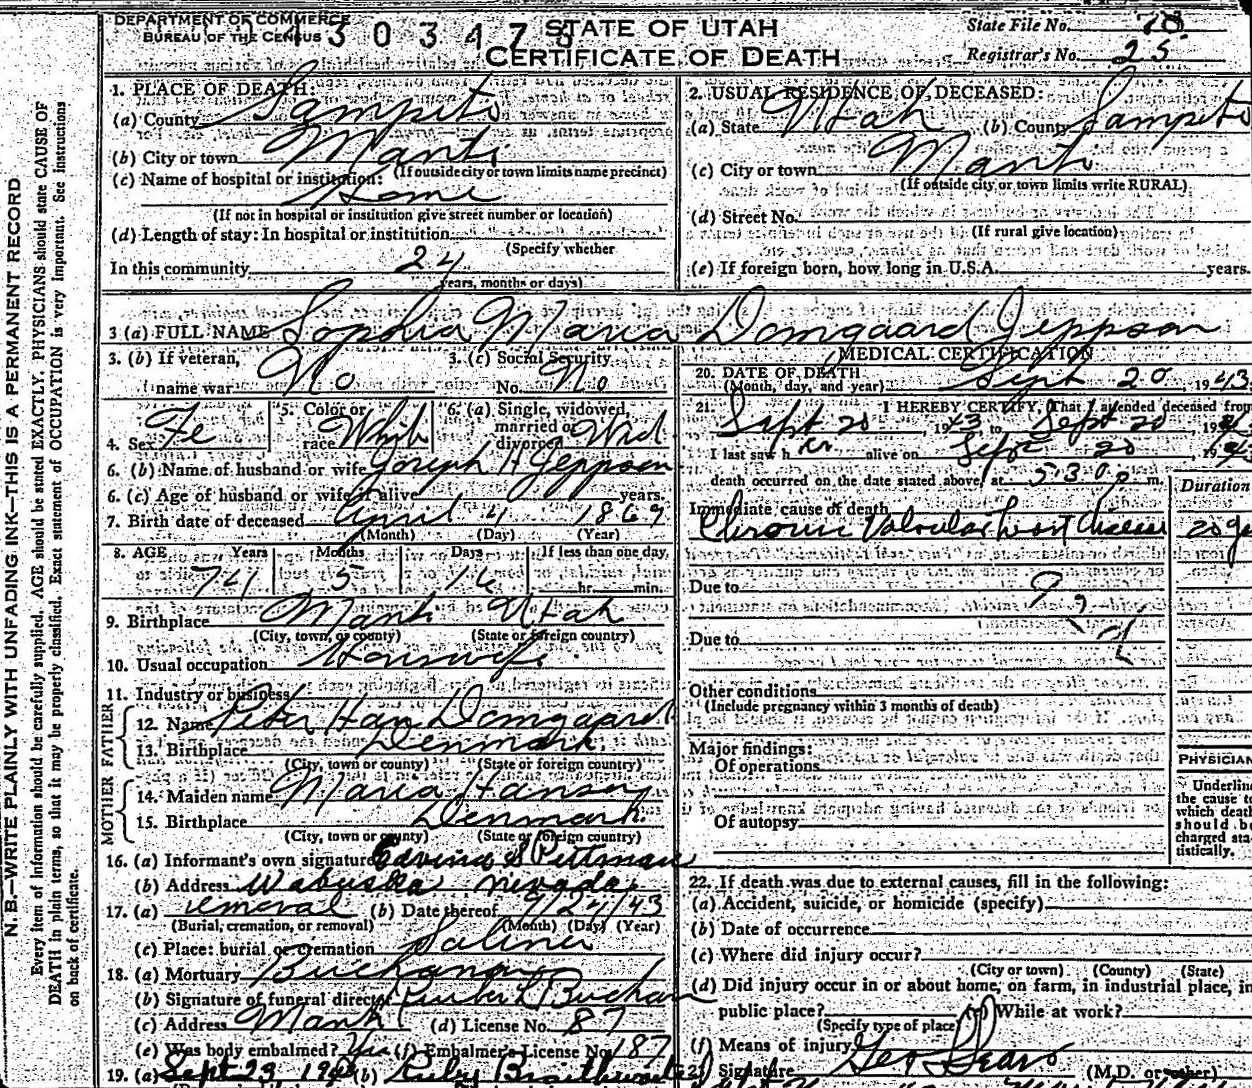 DEPARTMENT OF COMMERCE
BUREAU OF THE CENSUS
STATE OF UTAH
CERTIFICATE OF DEATH
State File No. 78
Registrar's No. 25
N. B.—WRITE PLAINLY WITH UNFADING INK—THIS IS A PERMANENT RECORD
Every item of information should be carefully supplied. AGE should be stated EXACTLY. PHYSICIANS should state CAUSE OF
DEATH in plain terms, so that it may be properly classified. Exact statement of OCCUPATION is very important. See instructions
on back of certificate.
1. PLACE OF DEATH:
(a) County Sanpete
(b) City or town Manti
(If outside city or town limits name precinct)
(c) Name of hospital or institution:
Home
(If not in hospital or institution give street number or location)
(d) Length of stay: In hospital or institution
(Specify whether
In this community 24
years, months or days)
2. USUAL RESIDENCE OF DECEASED:
(a) State Utah (b) County Sanpete
(c) City or town Manti
(If outside city or town limits write RURAL)
(d) Street No.
(If rural give location)
(e) If foreign born, how long in U.S.A. years.
3 (a) FULL NAME Sophia Maria Domgaard Jeppson
3. (b) If veteran,
name war No
3. (c) Social Security
No. No
4. Sex Fe
5. Color or
race White
6. (a) Single, widowed,
married or
divorced Wid
6. (b) Name of husband or wife Joseph H Jeppson
6. (c) Age of husband or wife if alive years.
7. Birth date of deceased April 4 1869
(Month) (Day) (Year)
8. AGE Years Months Days If less than one day,
74 5 16 hr. min.
9. Birthplace Manti Utah
(City, town, or county) (State or foreign country)
10. Usual occupation Housewife
11. Industry or business
FATHER
12. Name Peter Han Domgaard
13. Birthplace Denmark
(City, town or county) (State or foreign country)
MOTHER
14. Maiden name Maria Hansen
15. Birthplace Denmark
(City, town or county) (State or foreign country)
16. (a) Informant's own signature Edvina S Pittman
(b) Address Wabuska Nevada
17. (a) removal (b) Date thereof 9/24/43
(Burial, cremation, or removal) (Month) (Day) (Year)
(c) Place: burial or cremation Salina
18. (a) Mortuary Buchanan
(b) Signature of funeral director Buchan
(c) Address Manti (d) License No. 87
(e) Was body embalmed? Yes (f) Embalmer's License No. 187
19. (a) Sept 23, (b) Ruby Braithwaite
MEDICAL CERTIFICATION
20. DATE OF DEATH
(Month, day, and year) Sept 20, 1943
21. I HEREBY CERTIFY, That I attended deceased from
Sept 20, 1943 to Sept 20
I last saw her alive on Sept 20
death occurred on the date stated above, at 530 p m.
Duration
Immediate cause of death
Chronic Valvular heart disease 20
Due to
Due to
Other conditions
(Include pregnancy within 3 months of death)
Major findings:
Of operations
Of autopsy
PHYSICIAN
Underline
the cause to
which death
should be
charged sta-
tistically.
22. If death was due to external causes, fill in the following:
(a) Accident, suicide, or homicide (specify)
(b) Date of occurrence
(c) Where did injury occur?
(City or town) (County) (State)
(d) Did injury occur in or about home, on farm, in industrial place, in
public place? (e) While at work?
(Specify type of place)
(f) Means of injury
Signature Geo L Sears (M.D. or other)